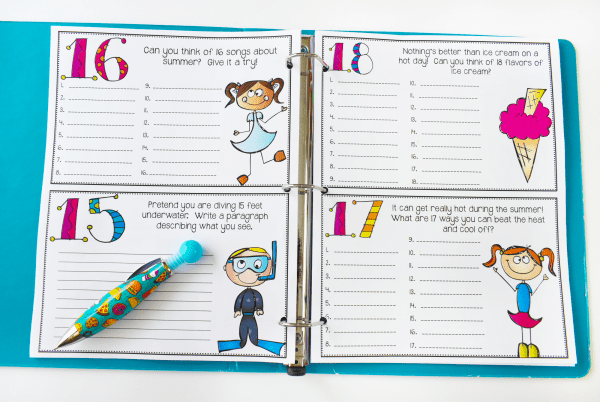 16
Can you think of 16 songs about
summer? Give it a try!
1.
2.
3.
4.
5.
6.
7.
8.
9.
10.
11.
12.
13.
14.
15.
16.
15
Pretend you are diving 15 feet
underwater. Write a paragraph
describing what you see.
18
Nothing's better than ice cream on a
hot day! Can you think of 18 flavors of
ice cream?
1.
2.
3.
4.
5.
6.
7.
8.
9.
10.
11.
12.
13.
14.
15.
16.
17.
18.
17
It can get really hot during the summer!
What are 17 ways you can beat the heat
and cool off?
1.
2.
3.
4.
5.
6.
7.
8.
9.
10.
11.
12.
13.
14.
15.
16.
17.